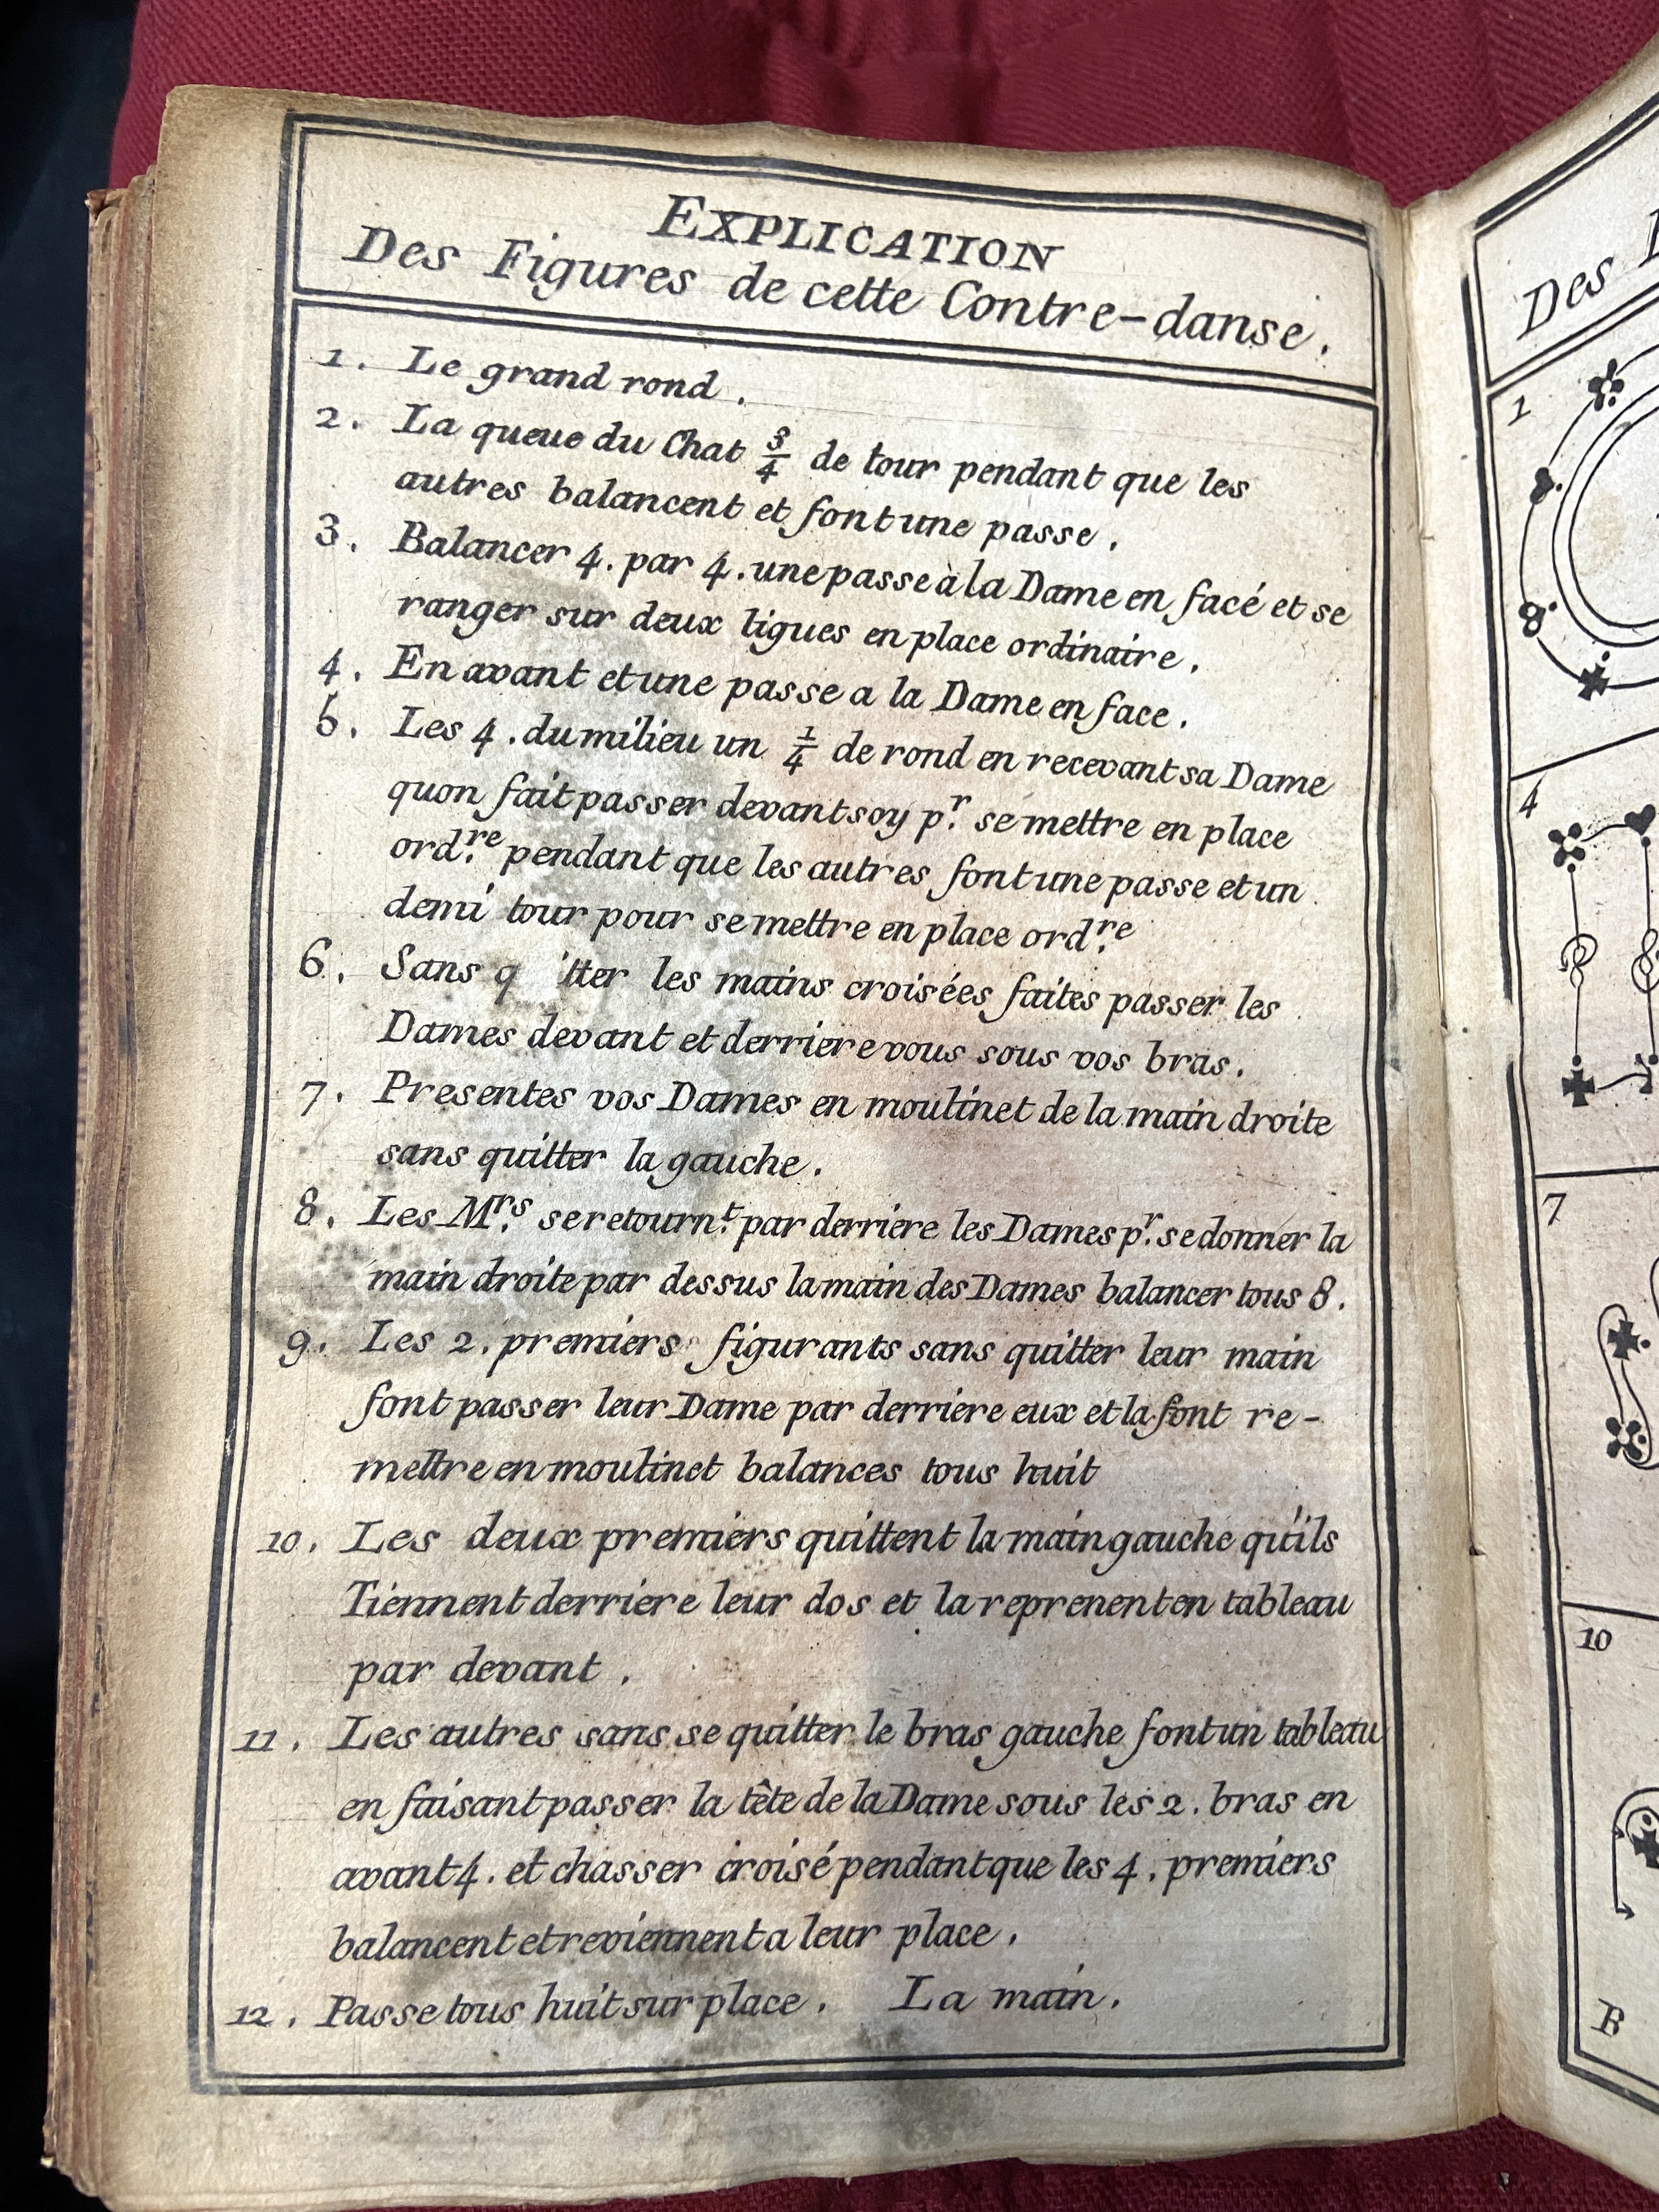 EXPLICATION
Des Figures de cette Contre-danse.
1. Le grand rond.
2. La queue du Chat 3/4 de tour pendant que les
autres balancent et font une passe.
3. Balancer 4. par 4. une passe à la Dame en facé et se
ranger sur deux ligues en place ordinaire.
4. En avant et une passe a la Dame en face.
5. Les 4. du milieu un 1/4 de rond en recevant sa Dame
quon fait passer devant soy pr. se mettre en place
ord.re pendant que les autres font une passe et un
demi tour pour se mettre en place ord.re
6. Sans q itter les mains croisées faites passer les
Dames devant et derriere vous sous vos bras.
7. Presentes vos Dames en moulinet de la main droite
sans quitter la gauche.
8. Les M.rs se retourn.t par derriere les Dames pr. se donner la
main droite par dessus la main des Dames balancer tous 8.
9. Les 2. premiers figurants sans quitter leur main
font passer leur Dame par derriere eux et la font re-
mettre en moulinet balances tous huit
10. Les deux premiers quittent la main gauche qu'ils
Tiennent derriere leur dos et la reprenent en tableau
par devant.
11. Les autres sans se quitter le bras gauche font un tableau
en faisant passer la tête de la Dame sous les 2. bras en
avant 4. et chasser croisé pendant que les 4. premiers
balancent et reviennent a leur place.
12. Passe tous huit sur place. La main.
Des
1
4
7
10
B